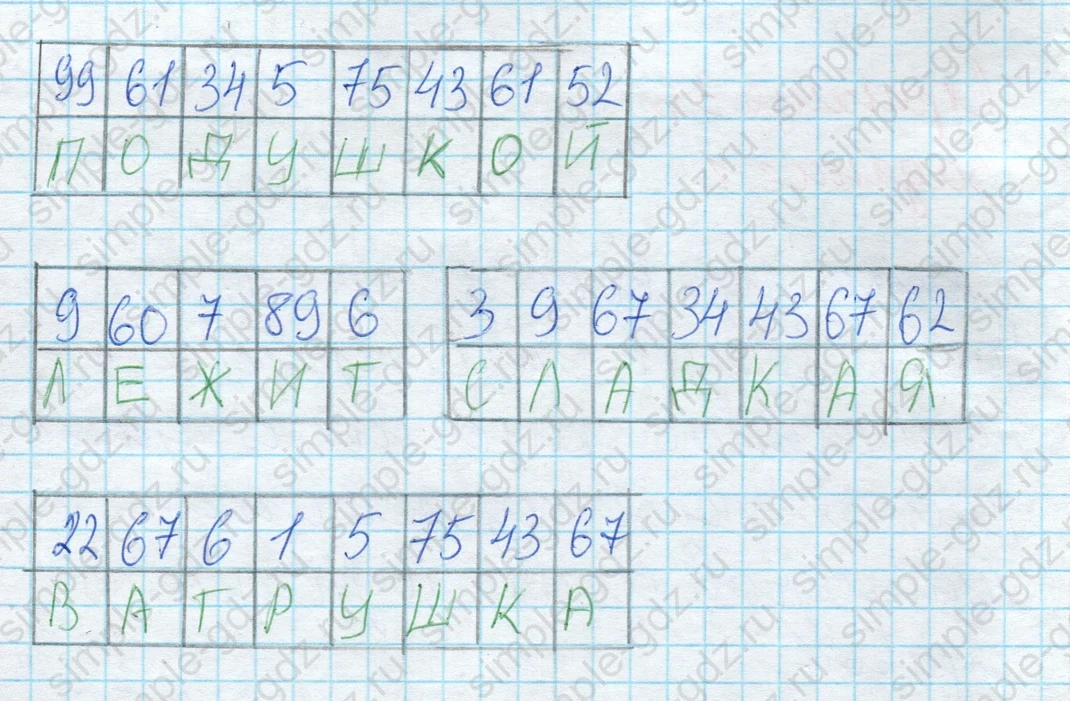 99 61 34 5 75 43 61 52
П О Д У Ш К О Й
9 60 7 89 6 3 9 67 34 43 67 62
Л Е Ж И Т С Л А Д К А Я
22 67 6 1 5 75 43 67
В А Т Р У Ш К А
simple-gdz.ru